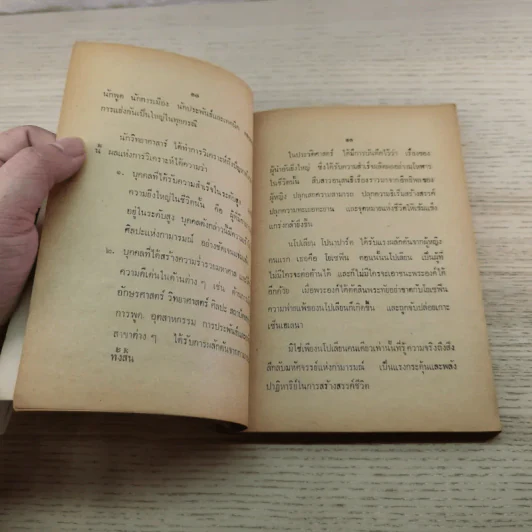 ๑๘
นักพูด นักการเมือง นักประพันธ์และเทคนิค
การแข่งขันเป็นใหญ่ในทุกกรณี
นักวิทยาศาสตร์ ได้ทำการวิเคราะห์ถึง
นี้ ผลแห่งการวิเคราะห์ได้ความว่า
๑. บุคคลที่ได้รับความสำเร็จในระดับสูง
ความยิ่งใหญ่ในชีวิตนั้น คือ ผู้ที่มี
อยู่ในระดับสูง บุคคลดังกล่าวนี้มีความ
ศิลปะแห่งกามารมณ์ อย่างชัดเจน
๒. บุคคลที่ได้สร้างความร่ำรวยมหาศาล และ
ความดีเด่นในด้านต่าง ๆ เช่น
อักษรศาสตร์ วิทยาศาสตร์ ศิลปะ
การพูด อุตสาหกรรม การประพันธ์
สาขาต่าง ๆ ได้รับการผลักดันจาก
ทั้งสิ้น
๑๙
ในประวัติศาสตร์ ได้มีการบันทึกไว้ว่า เรื่องของ
ผู้นำอันยิ่งใหญ่ ซึ่งได้รับความสำเร็จอย่าง
ในชีวิตนั้น สืบสาวจนพบเรื่องราวมาจากอิทธิพลของ
ผู้หญิง ปลุกเสกความสามารถ ปลุกความริเริ่มสร้างสรรค์
ปลุกความทะเยอทะยาน และจุดหมายแห่งชีวิตให้เข้มแข็ง
แกร่งกล้ายิ่งขึ้น
นโปเลียน โบนาปาร์ต ได้รับแรงผลักดันจากผู้หญิง
คนแรก เธอคือ โยเซฟิน ตอนนั้นนโปเลียน เป็นผู้ที่
ไม่มีใครจะต่อต้านได้ และก็ไม่มีใครจะเอาชนะพระองค์ได้
อีกด้วย เมื่อพระองค์ได้ตัดสินพระทัยหย่าขาดกับโยเซฟิน
ความพ่ายแพ้ของนโปเลียนก็เกิดขึ้น และถูกจับปล่อยเกาะ
เซ็นต์เฮเลนา
มิใช่เพียงนโปเลียนคนเดียวเท่านั้นที่รู้ความจริงถึงสิ่ง
ลึกลับมหัศจรรย์แห่งกามารมณ์ เป็นแรงกระตุ้นและพลัง
ปาฏิหาริย์ในการสร้างสรรค์ชีวิต